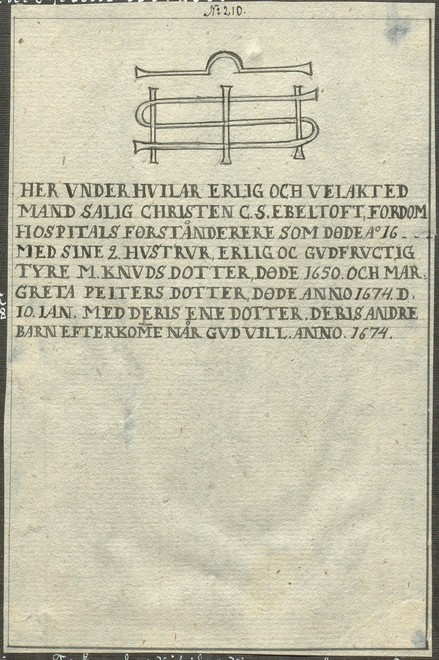 N:o 210.
HER VNDER HVILAR ERLIG OCH VELAKTED
MAND SALIG CHRISTEN C. S. EBELTOFT, FORDOM
HOSPITALS FORSTÅNDERERE SOM DØDE Aº 16_ _
MED SINE 2. HVSTRVR, ERLIG OC GVDFRVCTIG
TYRE M. KNVDS DOTTER, DØDE 1650. OCH MAR,
GRETA PEITERS DOTTER, DØDE ANNO 1674. D.
10. IAN. MED DERIS ENE DOTTER, DERIS ANDRE
BARN EFTERKOM̅E NÅR GVD VILL. ANNO. 1674.